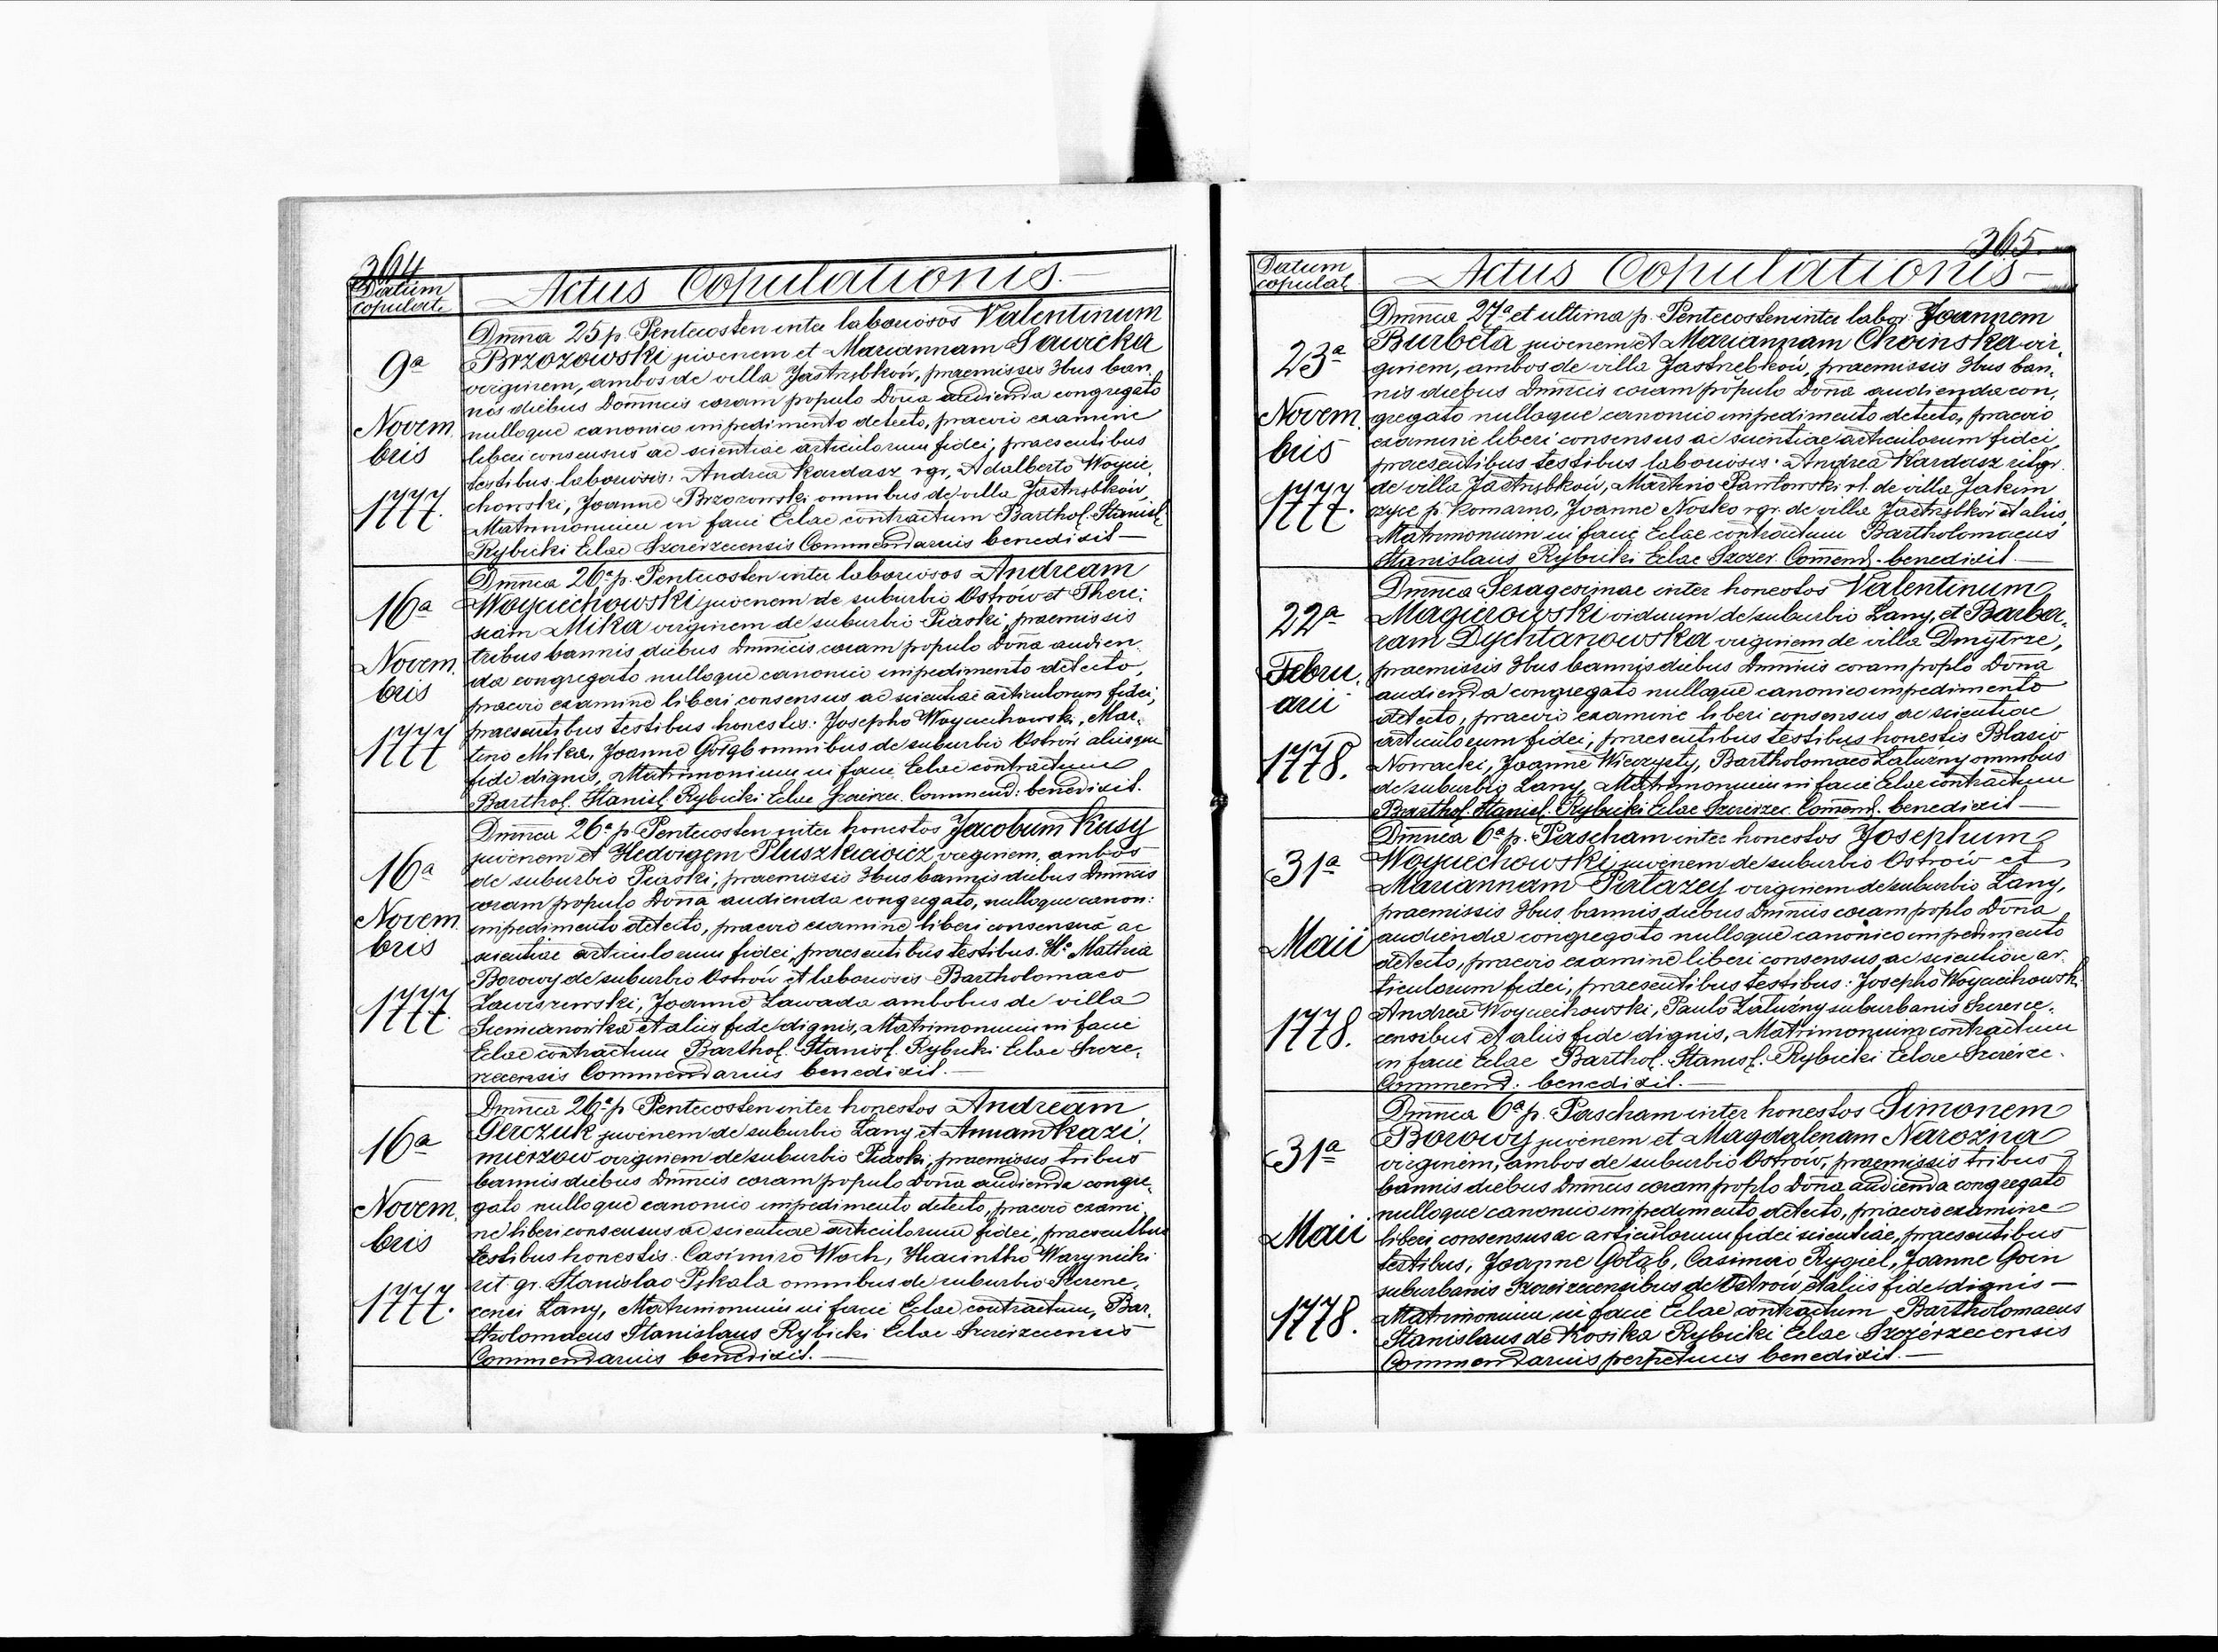 364
Datum
copulat.
Actus Copulationis.
9a
Novem.
bris
1777.
Dmnca 25 p. Pentecosten inter laboriosos Valentinum
Brzozowski juvenem et Mariannam Sawicka
virginem, ambos de villa Jastrzbków, praemissis 3bus ban.
nis diebus Domncis coram populo Dona audienda congregato
nulloque canonico impedimento detecto, praevio examine
liberi consensus ac scientiae articulorum fidei; praesentibus
testibus laboriosis: Andrea Kardasz rgr, Adalberto Woycie,
chowski, Joanne Brzozowski omnibus de villa Jastrzbków
Matrimonium in facie Eclae contractum Barthol. Stanisl.
Rybicki Eclae Szczerzecensis Commendarius benedixit —
16a
Novem.
bris
1777
Dmnca 26a p. Pentecosten inter laboriosos Andream
Woyciechowski juvenem de suburbio Ostrów et There;
siam Mika virginem de suburbio Piaski, praemissis
tribus bannis diebus Dmnicis coram populo Dona audien.
da congregato nulloque canonico impedimento detecto,
praevio examine liberi consensus ac scientiae articulorum fidei;
praesentibus testibus honestis: Josepho Woyciechowski, Mar.
tino Mika, Joanne Gołąb omnibus de suburbio Ostrów aliisque
fide dignis, Matrimonium in facie Eclae contractum
Barthol. Stanisl. Rybicki Eclae Szczerzec. Commend: benedixit.
16a
Novem.
bris
1777.
Dmnca 26a p. Pentecosten inter honestos Jacobum Kusy
juvenem et Hedvigem Pluszkiewicz virginem, ambos
de suburbio Piaski, praemissis 3bus bannis diebus Dmncis
coram populo Dona audienda congregato, nulloque canon:
impedimento detecto, praevio examine liberi consensus ac
scientiae articulorum fidei, praesentibus testibus. Ho Mathia
Borowy de suburbio Ostrów et laboriosis Bartholomaeo
Lawiszewski, Joanne Zawada ambobus de villa
Siemianówka et aliis fide dignis, Matrimonium in facie
Eclae contractum Barthol. Stanisl. Rybicki Eclae Szcze,
rzecensis Commendarius benedixit. —
16a
Novem.
bris
1777.
Dmnca 26a p. Pentecosten inter honestos Andream
Gerczuk juvenem de suburbio Lany et Annam Kazi,
mierzow virginem de suburbio Piaski, praemissis tribus
bannis diebus Dmncis coram populo Dona audienda congre,
gato nulloque canonico impedimento detecto, praevio exami,
ne liberi consensus ac scientiae articulorum fidei, praesentibus
testibus honestis: Casimiro Woch, Hiacintho Warynicki
rit. gr. Stanislao Pskala omnibus de suburbio Szczerze,
censi Lany, Matrimonium in facie Eclae contractum, Bar.
tholomaeus Stanislaus Rybicki Eclae Szczerzecensis
Commendarius benedixit. —
365.
Datum
copulat.
Actus Copulationis —
23a
Novem.
bris
1777.
Dmnca 27a et ultima p. Pentecosten inter labor. Joannem
Burbeta juvenem et Mariannam Choinska vir,
ginem, ambos de villa Jastrzebków, praemissis 3bus ban,
nis diebus Dmncis coram populo Dona audienda con,
gregato nulloque canonico impedimento detecto, praevio
examine liberi consensus ac scientiae articulorum fidei,
praesentibus testibus laboriosis: Andrea Kardasz rit.gr.
de villa Jastrzbków, Martino Pawłowski rl. de villa Jakim
czyce p. Komarno, Joanne Nosko rgr. de villa Jastrzbków et aliis,
Matrimonium in facie Eclae contractum Bartholomaeus
Stanislaus Rybicki Eclae Szczerz. Comend. benedixit. —
22a
Febru.
arii
1778.
Dmnca Sexagesimae inter honestos Valentinum
Magierowski viduum de suburbio Lany, et Barba,
ram Dychtanowska virginem de villa Dmytrze,
praemissis 3bus bannis diebus Dmncis coram poplo Dona
audienda congregato nulloque canonico impedimento
detecto, praevio examine liberi consensus ac scientiae
articulorum fidei, praesentibus testibus honestis Blasio
Nowacki, Joanne Wiczysty, Bartholomaeo Załuźny omnibus
de suburbio Lany, Matrimonium in facie Eclae contractum
Barthol. Stanisl. Rybicki Eclae Szczerzec. Comend. benedixit —
31a
Maii
1778.
Dmnca 6a p. Pascham inter honestos Josephum
Woyciechowski juvenem de suburbio Ostrów et
Mariannam Patazey virginem de suburbio Lany,
praemissis 3bus bannis diebus Dmncis coram poplo Dona
audienda congregato nulloque canonico impedimento
detecto, praevio examine liberi consensus ac scientiae ar.
ticulorum fidei, praesentibus testibus: Josepho Woyciechowski
Andrea Woyciechowski, Paulo Załuźny suburbanis Szczerze,
censibus et aliis fide dignis, Matrimonium contractum
in facie Eclae Barthol. Stanisl. Rybicki Eclae Szczerze.
Commend: benedixit. —
31a
Maii
1778.
Dmnca 6a p. Pascham inter honestos Simonem
Borowy juvenem et Magdalenam Narozna
virginem, ambos de suburbio Ostrów, praemissis tribus
bannis diebus Dmncis coram poplo Dona audienda congregato
nulloque canonico impedimento detecto, praevio examine
liberi consensus ac articulorum fidei scientiae, praesentibus
testibus, Joanne Gołąb, Casimiro Rygiel, Joanne Goin
suburbanis Szczerzecensibus de Ostrów et aliis fide dignis —
Matrimonium in facie Eclae contractum Bartholomaeus
Stanislaus de Kosika Rybicki Eclae Szczérzecensis
Commendarius perpetuus benedixit. —